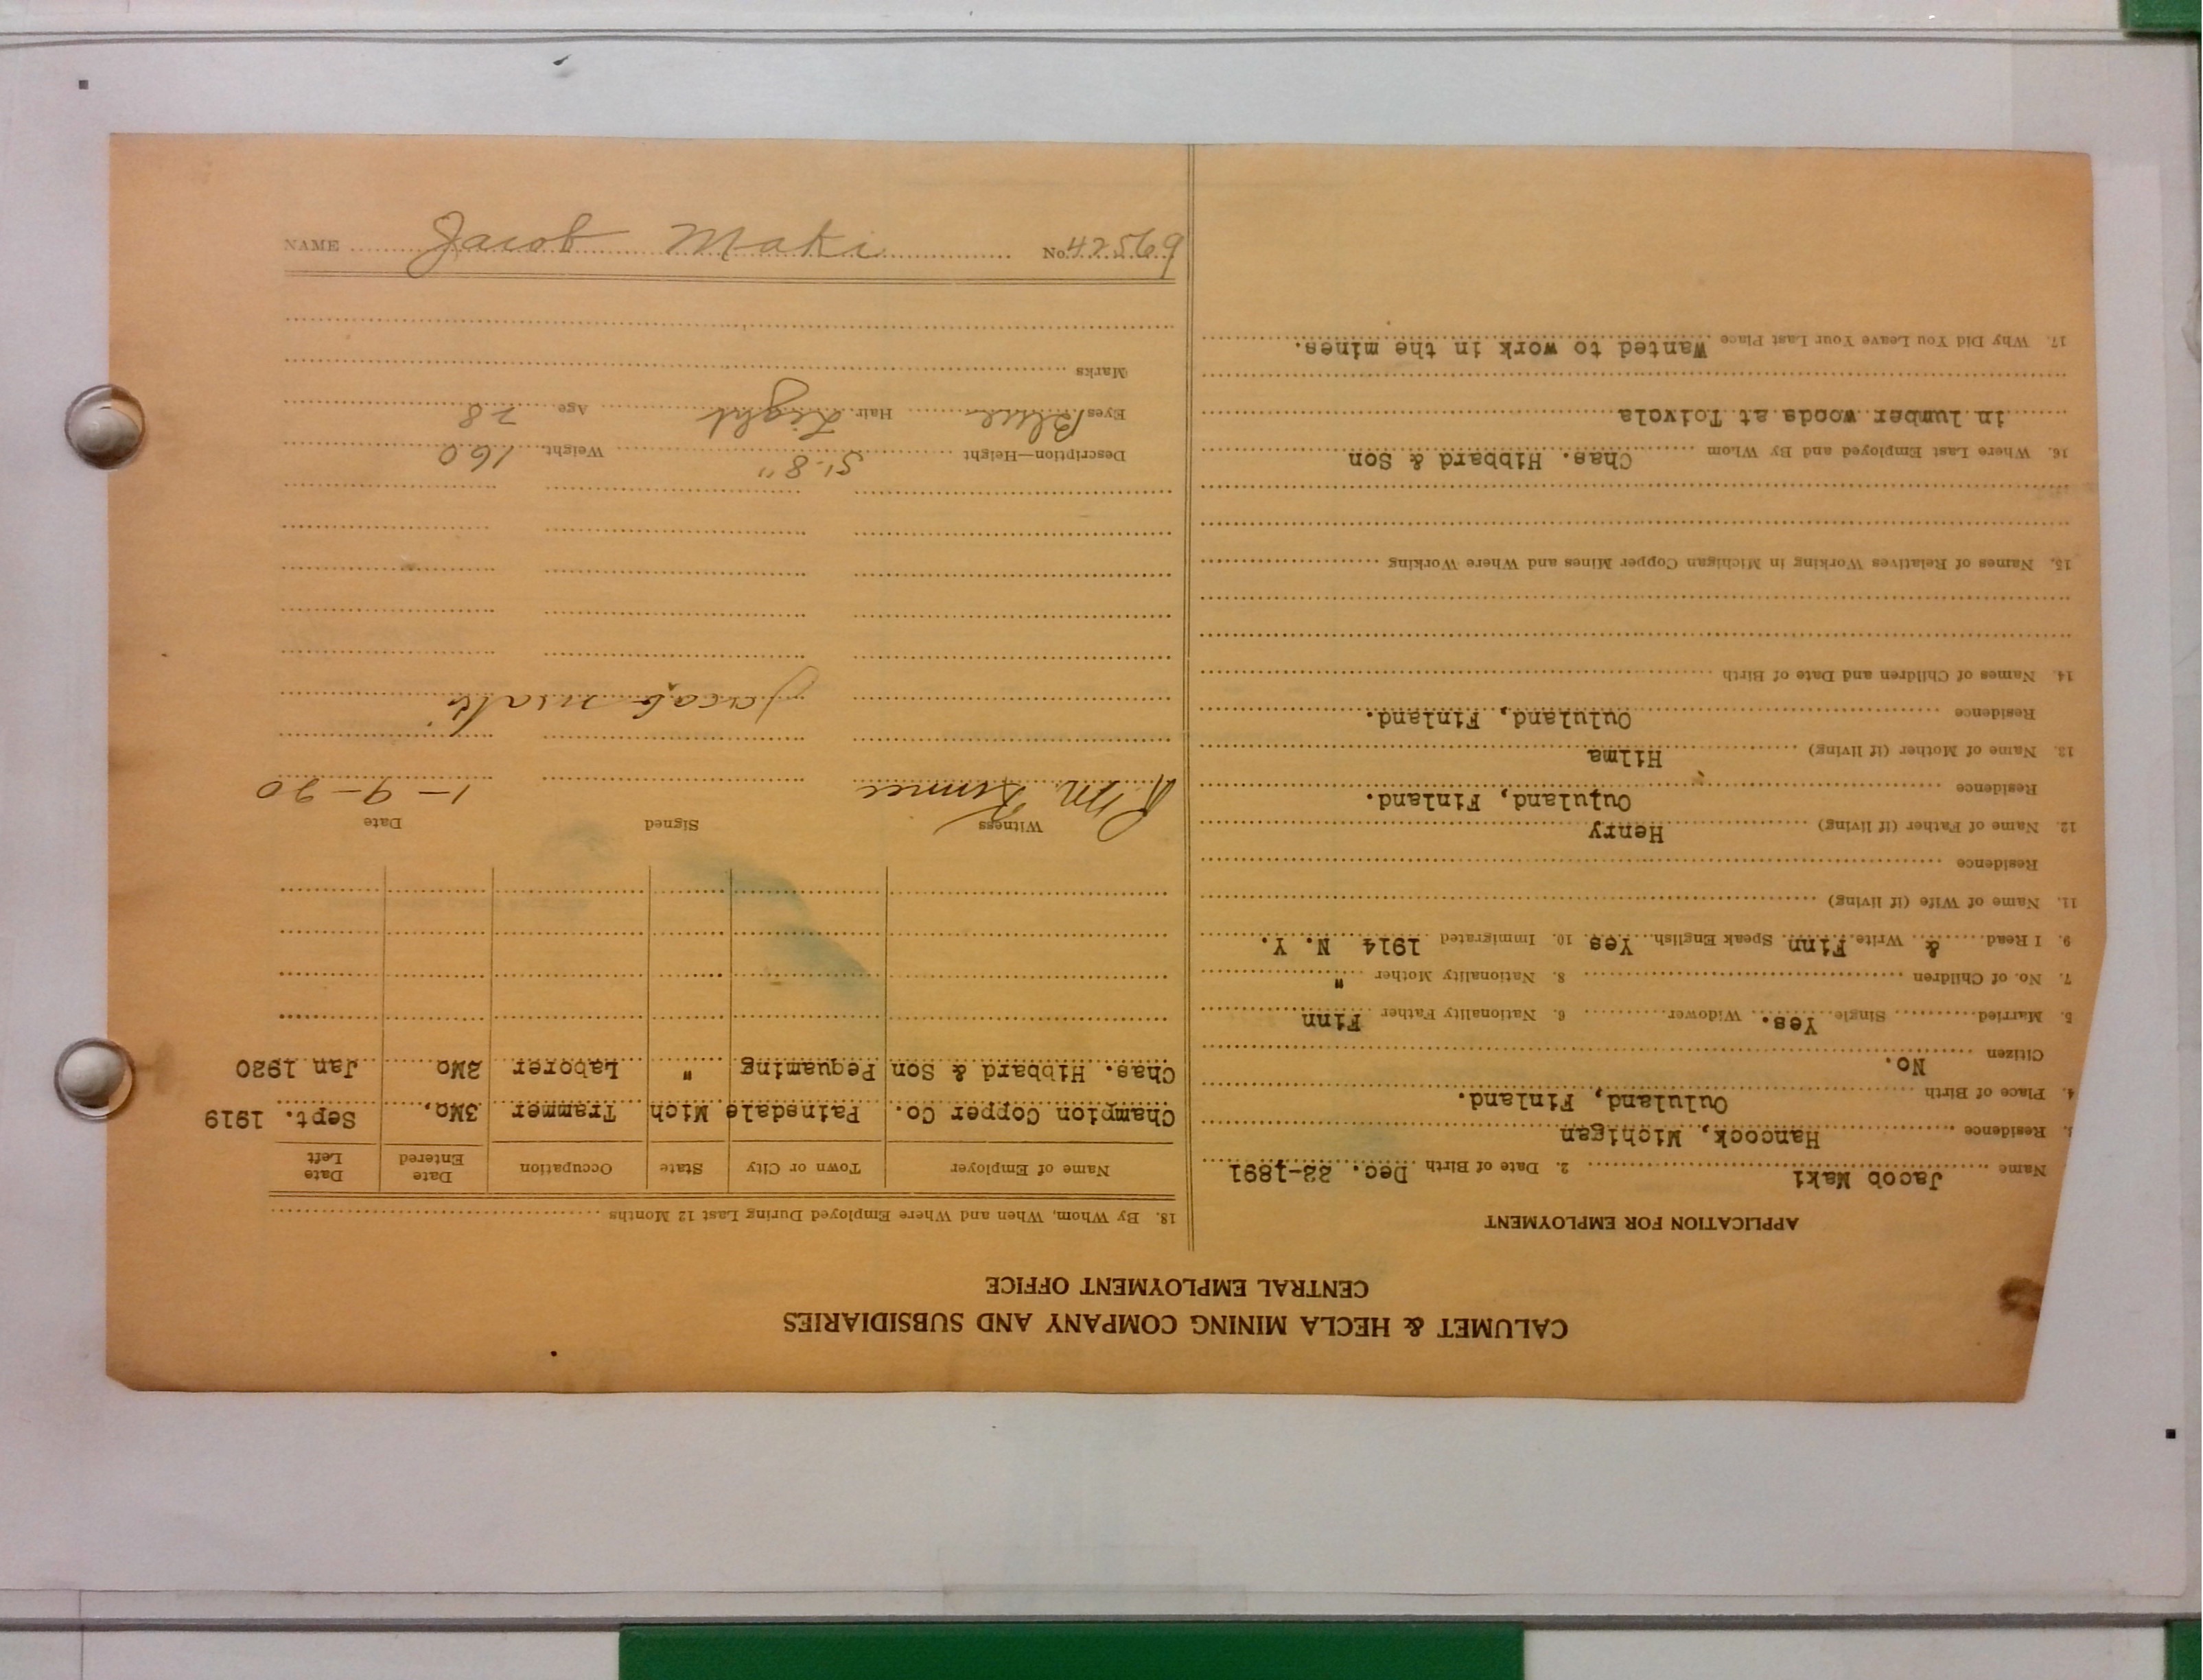 CALUMET & HECLA MINING COMPANY AND SUBSIDIARIES
CENTRAL EMPLOYMENT OFFICE
APPLICATION FOR EMPLOYMENT
Name Jacob Maki 2. Date of Birth Dec. 22-1891
3. Residence Hancock, Michigan
4. Place of Birth Oululand, Finland.
Citizen No.
5. Married Single Yes. Widower 6. Nationality Father Finn
7. No. of Children 8. Nationality Mother "
9. I Read & Write Finn Speak English Yes 10. Immigrated 1914 N. Y.
11. Name of Wife (if living)
Residence
12. Name of Father (if living) Henry
Residence Oululand, Finland.
13. Name of Mother (if living) Hilma
Residence Oululand, Finland.
14. Names of Children and Date of Birth
15. Names of Relatives Working in Michigan Copper Mines and Where Working
16. Where Last Employed and By Whom Chas. Hibbard & Son
in lumber woods at Toivola
17. Why Did You Leave Your Last Place Wanted to work in the mines.
18. By Whom, When and Where Employed During Last 12 Months
Name of Employer Town or City State Occupation Date Entered Date Left
Champion Copper Co. Painsdale Mich Trammer 3Mo. Sept. 1919
Chas. Hibbard & Son Pequaming " Laborer 2Mo Jan 1920
Witness Signed Date
1-9-20
Jacob Maki
Description—Height 5'-8" Weight 160
Eyes Blue Hair Light Age 28
Marks
NAME Jacob Maki No. 42569